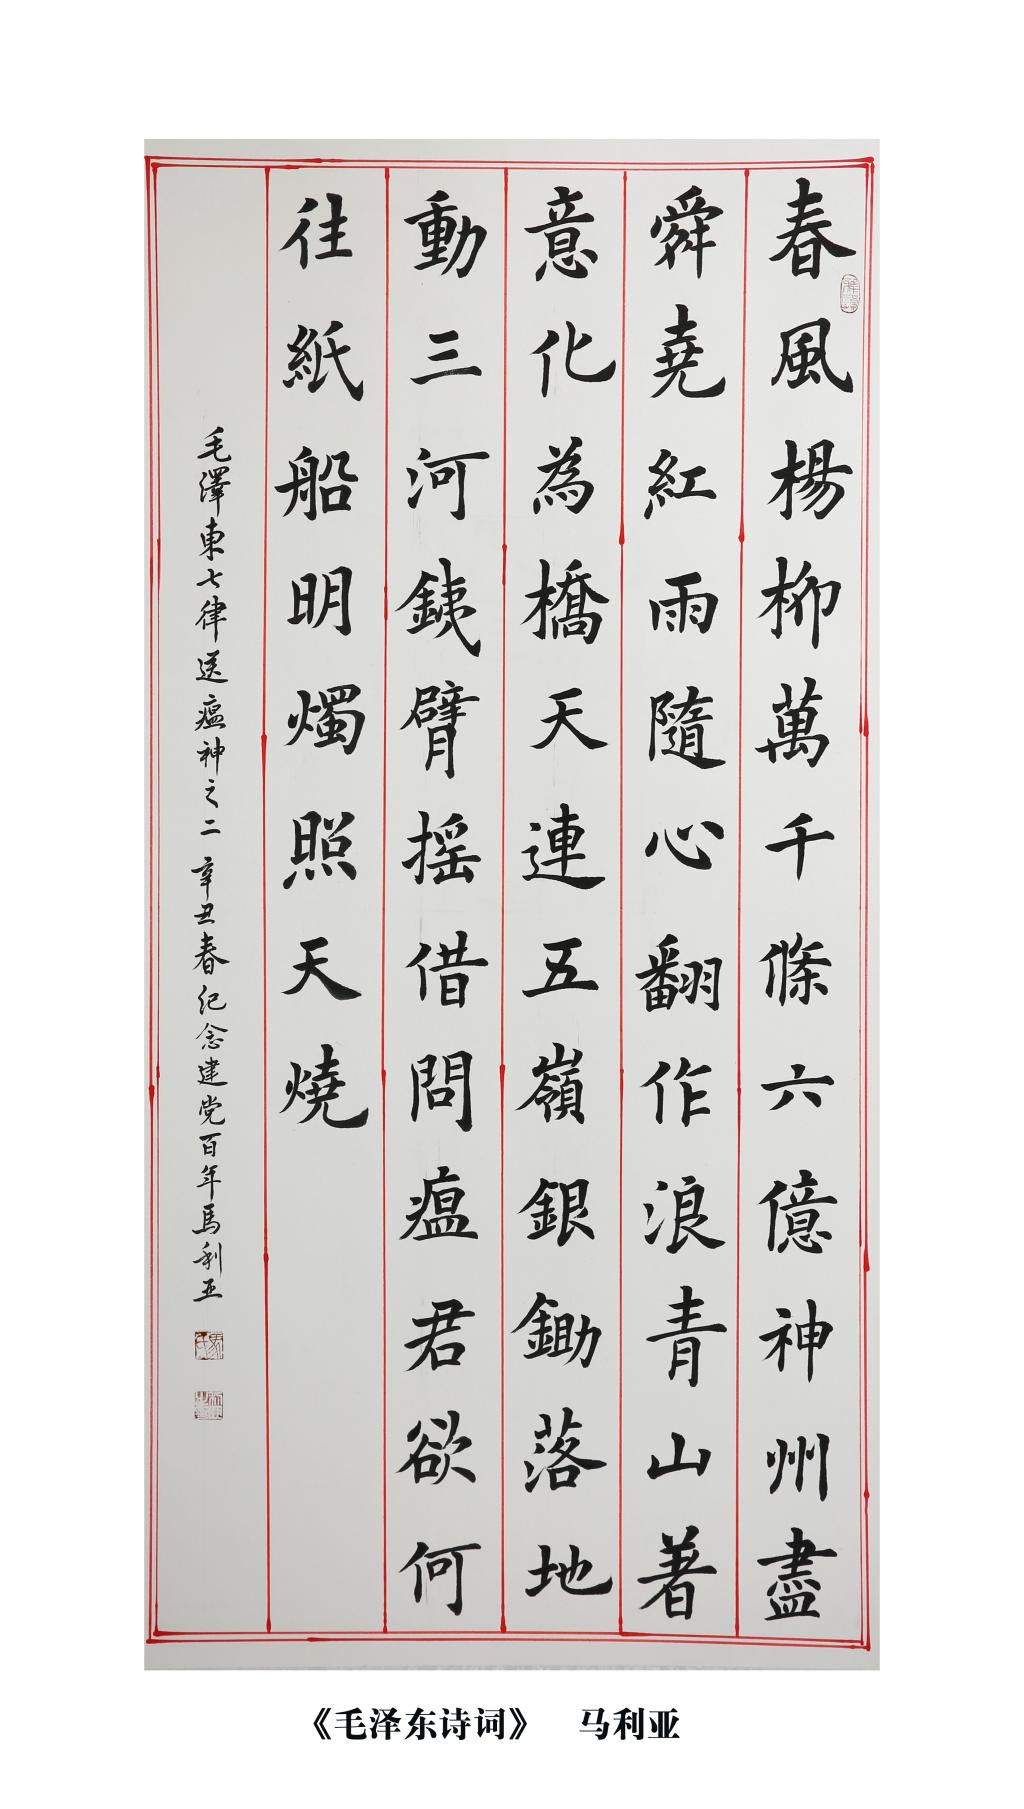 春風楊柳萬千條六億神州盡
舜堯紅雨隨心翻作浪青山著
意化為橋天連五嶺銀鋤落地
動三河銕臂摇借問瘟君欲何
往紙船明燭照天燒
毛澤東七律送瘟神之二 辛丑春纪念建党百年馬利亚
《毛泽东诗词》 马利亚